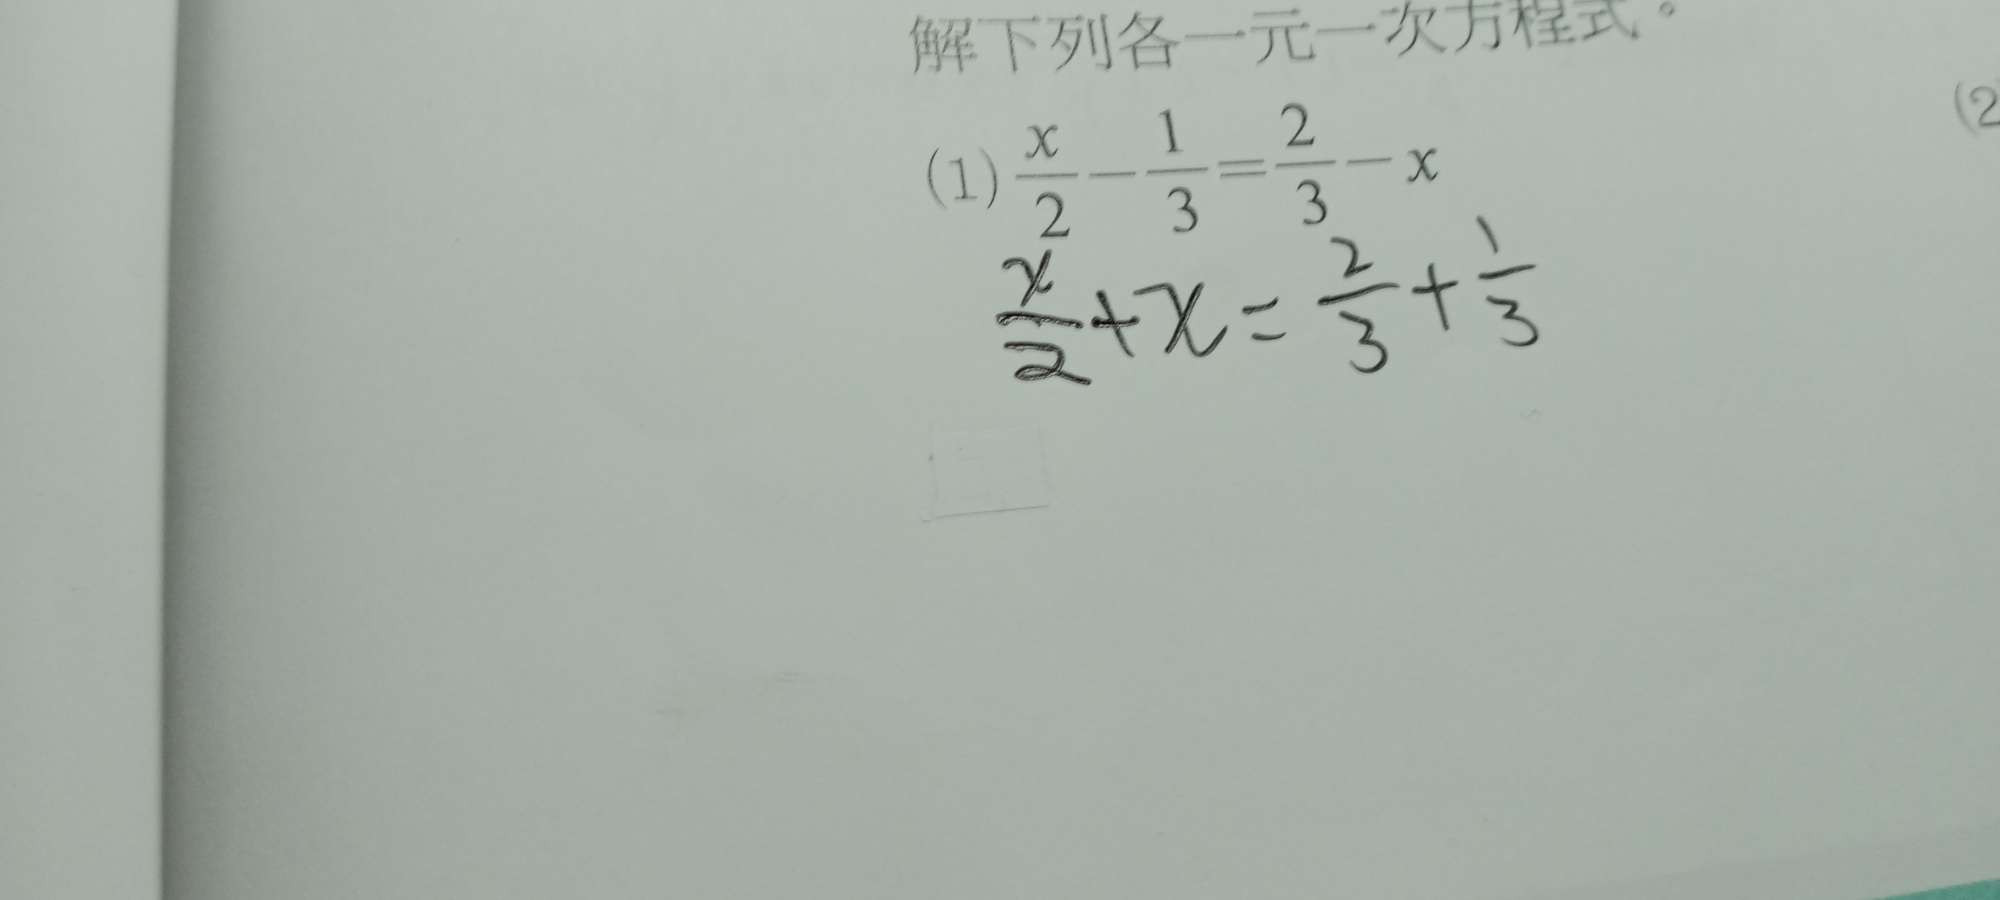 解下列各一元一次方程式。
(1) x/2 - 1/3 = 2/3 - x
(2
x/2 + x = 2/3 + 1/3